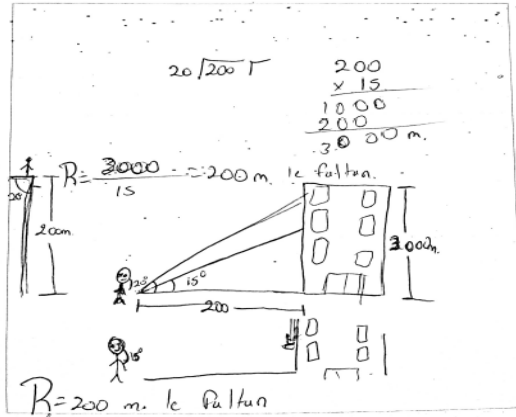 20 200
200
x 15
1000
200
3000 m.
R= 3000 / 15 = 200 m. le faltan.
20°
200m.
20° 15°
3000m.
200
15°
R=200 m. le faltan